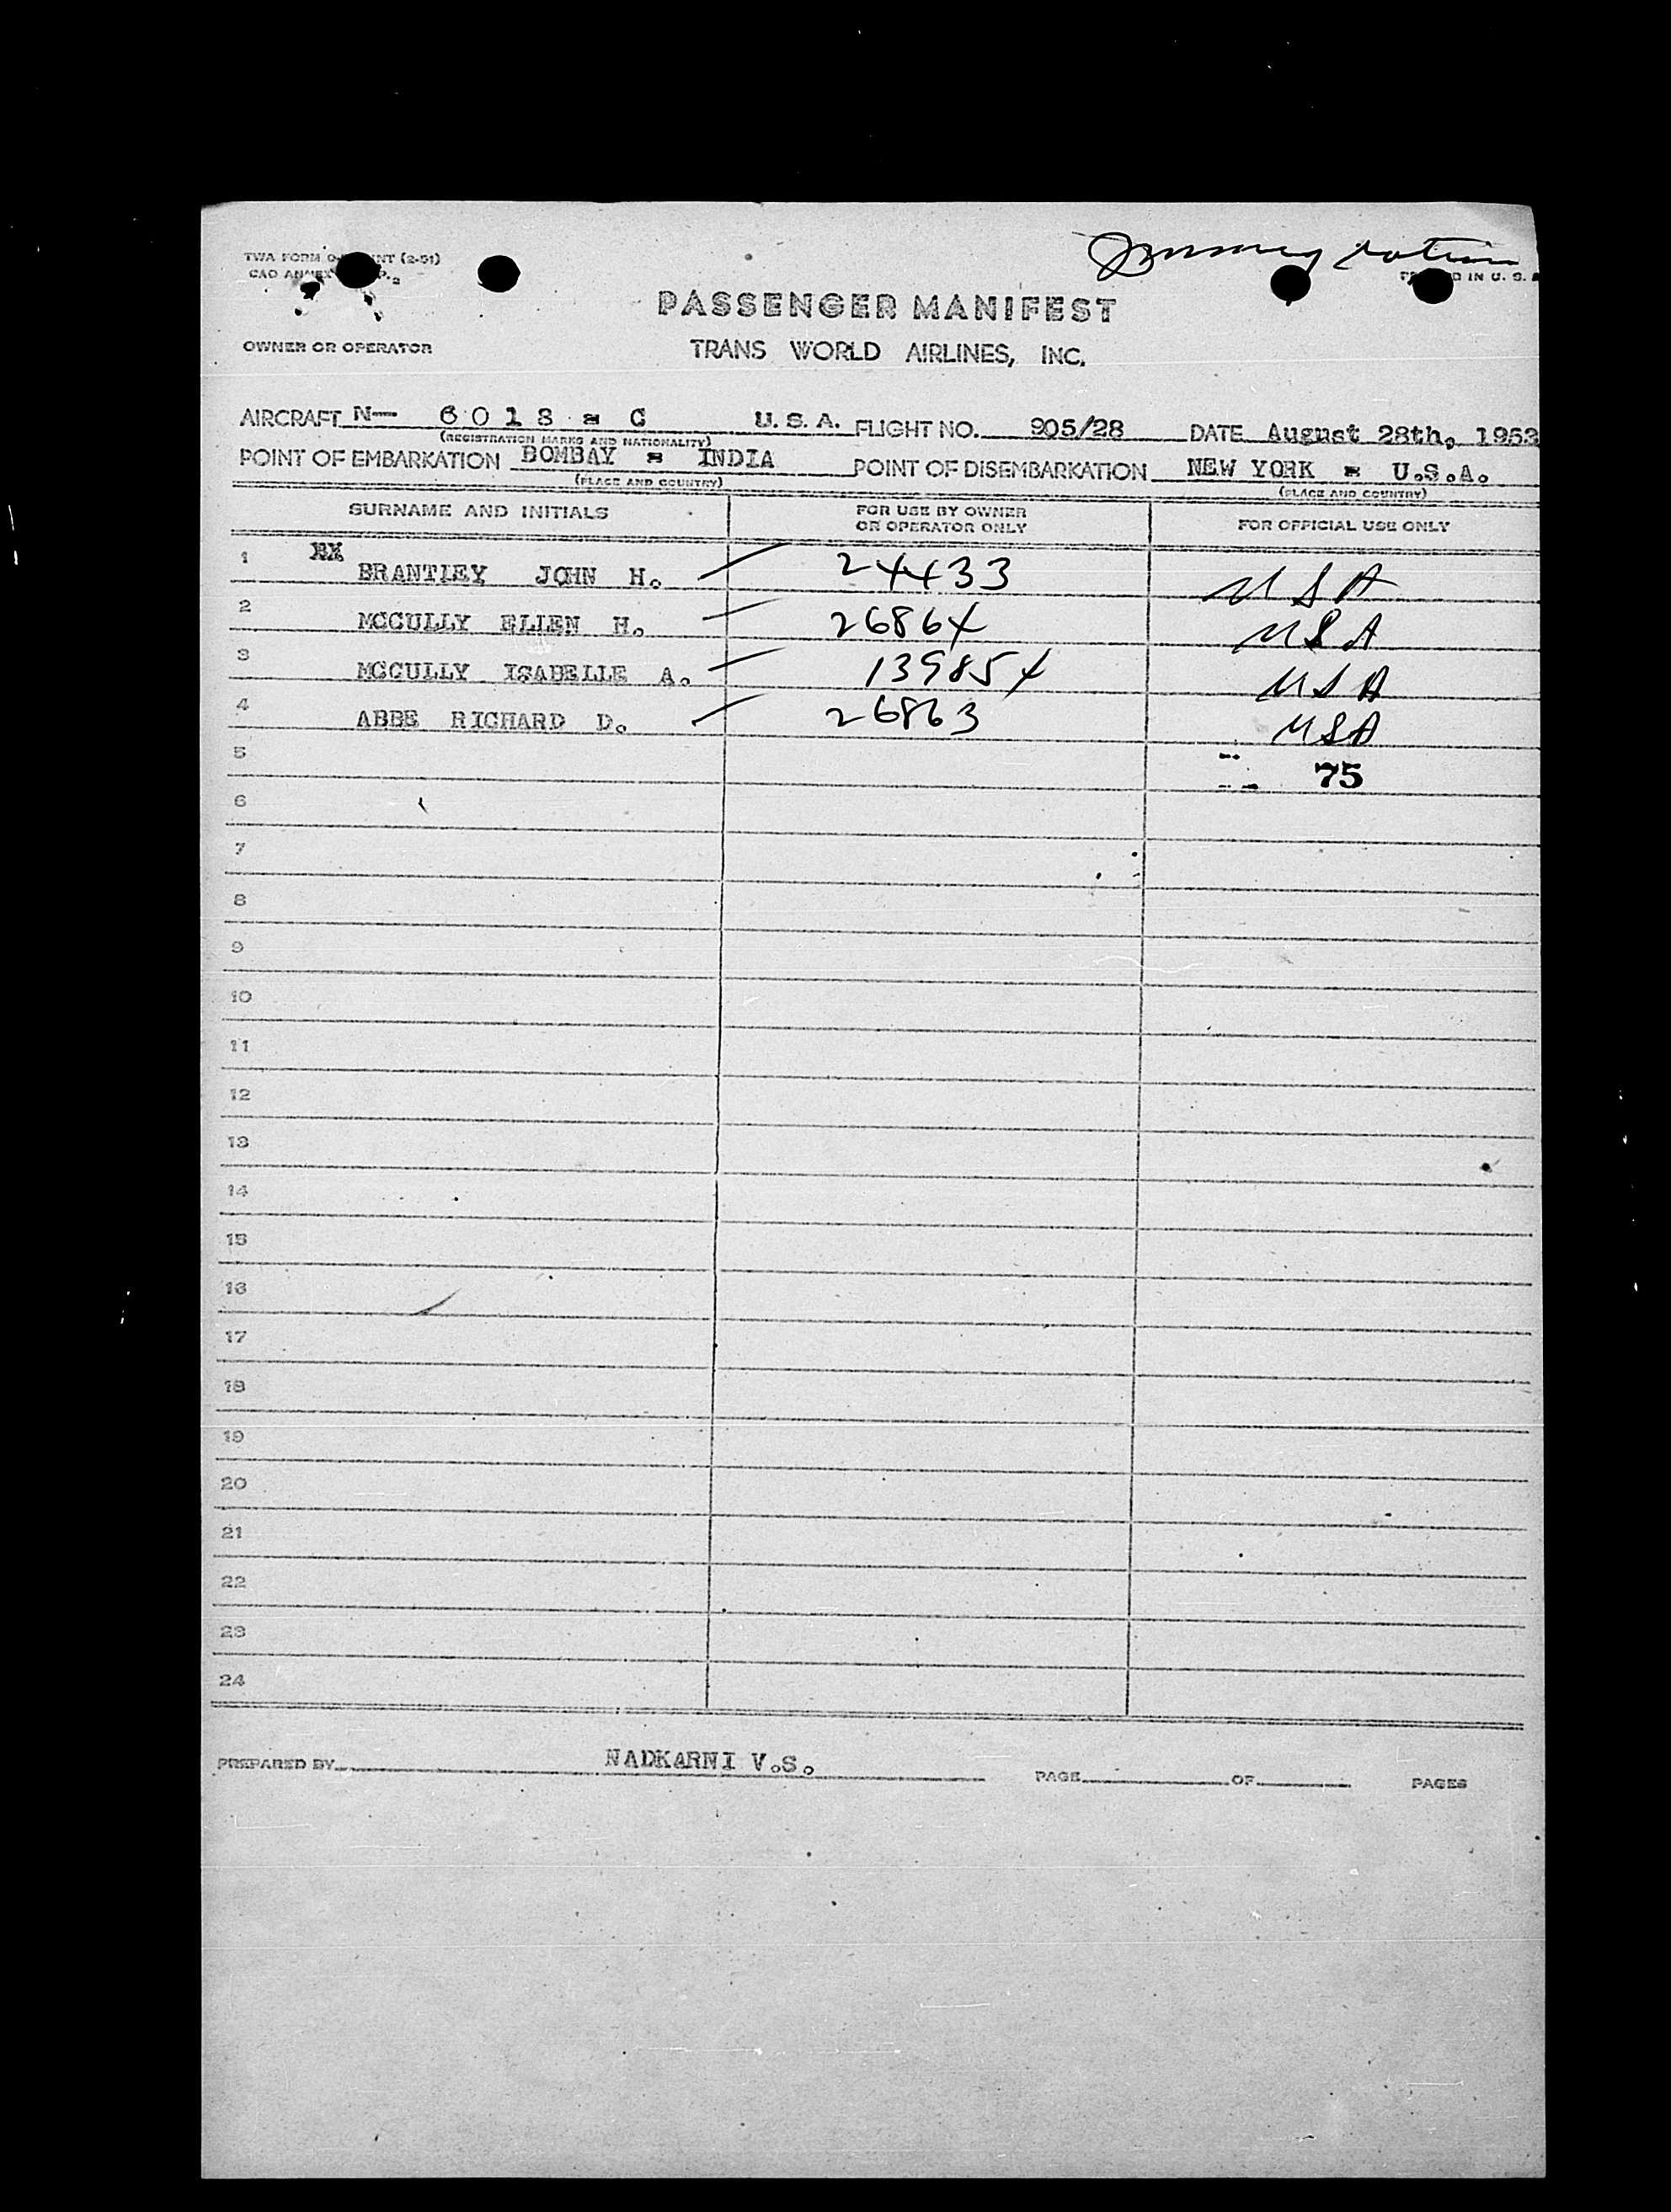 TWA FORM INT (2-51)
CAO ANNEX
PRINTED IN U. S. A
PASSENGER MANIFEST
OWNER OR OPERATOR
TRANS WORLD AIRLINES, INC.
AIRCRAFT N— 6018 - C U.S.A. FLIGHT NO. 905/28 DATE August 28th, 1953
(REGISTRATION MARKS AND NATIONALITY)
POINT OF EMBARKATION BOMBAY - INDIA POINT OF DISEMBARKATION NEW YORK - U.S.A.
(PLACE AND COUNTRY) (PLACE AND COUNTRY)
SURNAME AND INITIALS FOR USE BY OWNER OR OPERATOR ONLY FOR OFFICIAL USE ONLY
1 BRANTLEY JOHN H. 24433 USA
2 MCCULLY ELLEN H. 26864 USA
3 MCCULLY ISABELLE A. 139854 USA
4 ABBE RICHARD D. 26863 USA
5 75
6
7
8
9
10
11
12
13
14
15
16
17
18
19
20
21
22
23
24
PREPARED BY NADKARNI V.S. PAGE OF PAGES